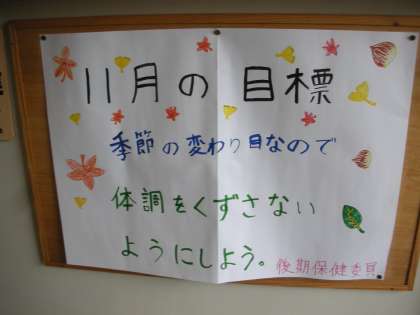 11月の目標
季節の変わり目なので
体調をくずさない
ようにしよう。
後期保健委員